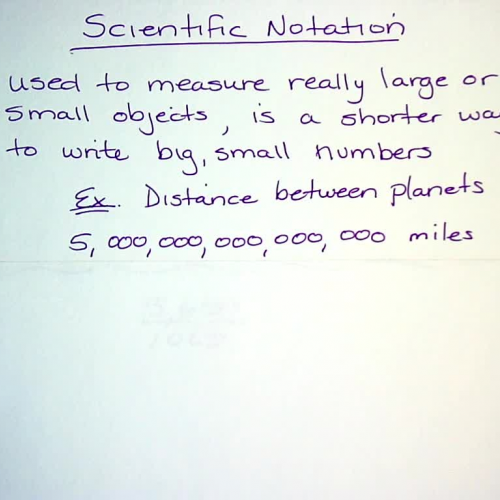 Scientific Notation
used to measure really large or
small objects, is a shorter way
to write big, small numbers
Ex. Distance between planets
5,000,000,000,000,000 miles